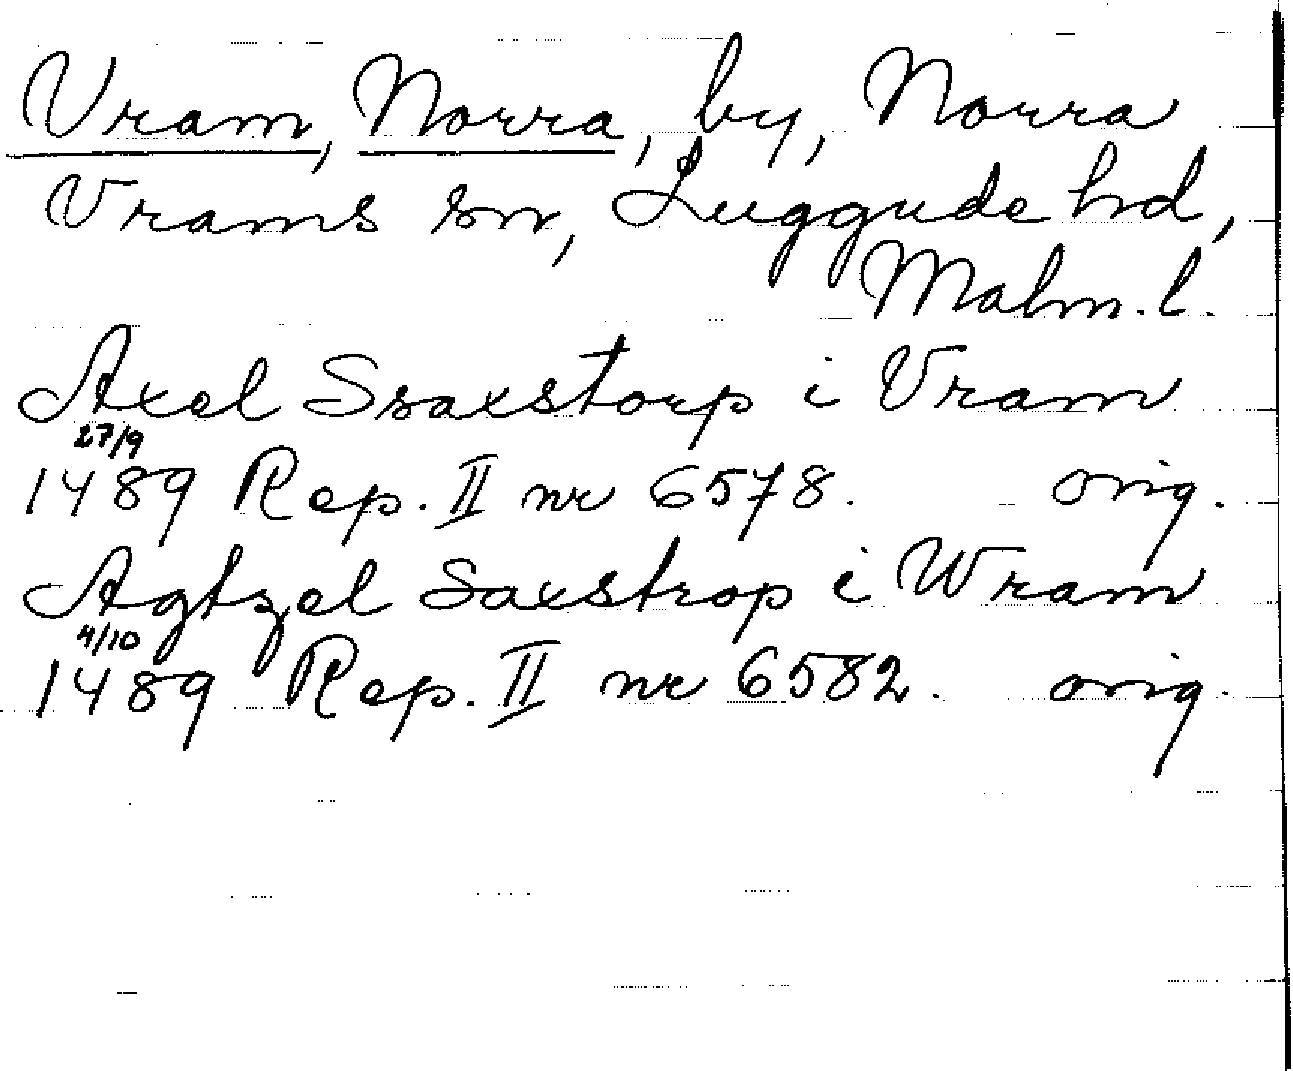 Vram, Norra, by, Norra
Vrams sn, Luggude hd,
Malm. l.
Axel Ssaxstorp i Vram
27/9
1489 Rep. II nr 6578. orig.
Agtzel Saxstrop i Wram
4/10
1489 Rep. II nr 6582. orig.